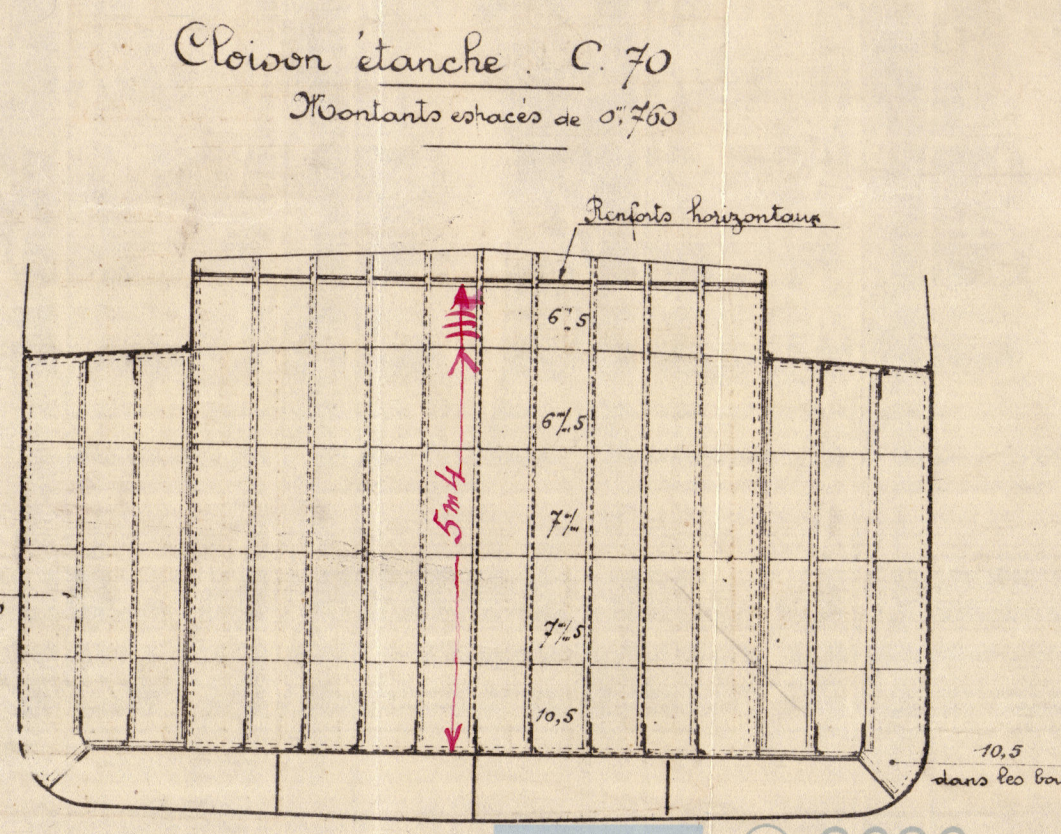 Cloison étanche. C. 70
Montants espacés de 0m,760
Renforts horizontaux
6m/m5
6m/m5
5m4
7m/m
7m/m5
10,5
10,5
dans les bou